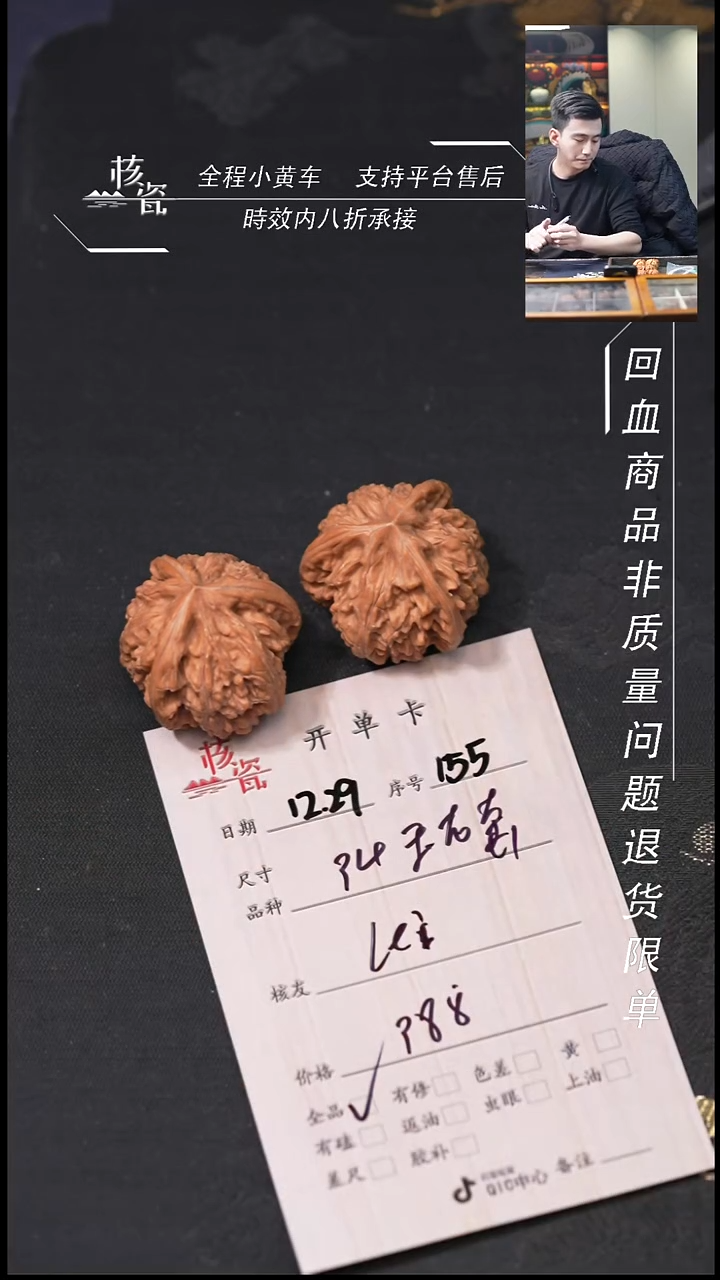 核瓷
全程小黄车 支持平台售后
時效内八折承接
回血商品非质量问题退货限单
核瓷
开单卡
日期 12.29 序号 155
尺寸
品种
核友
价格
全品 ✓ 有修 色差 黄
有磕 返油 虫眼 上油
差尺 胶补
QIC中心 备注